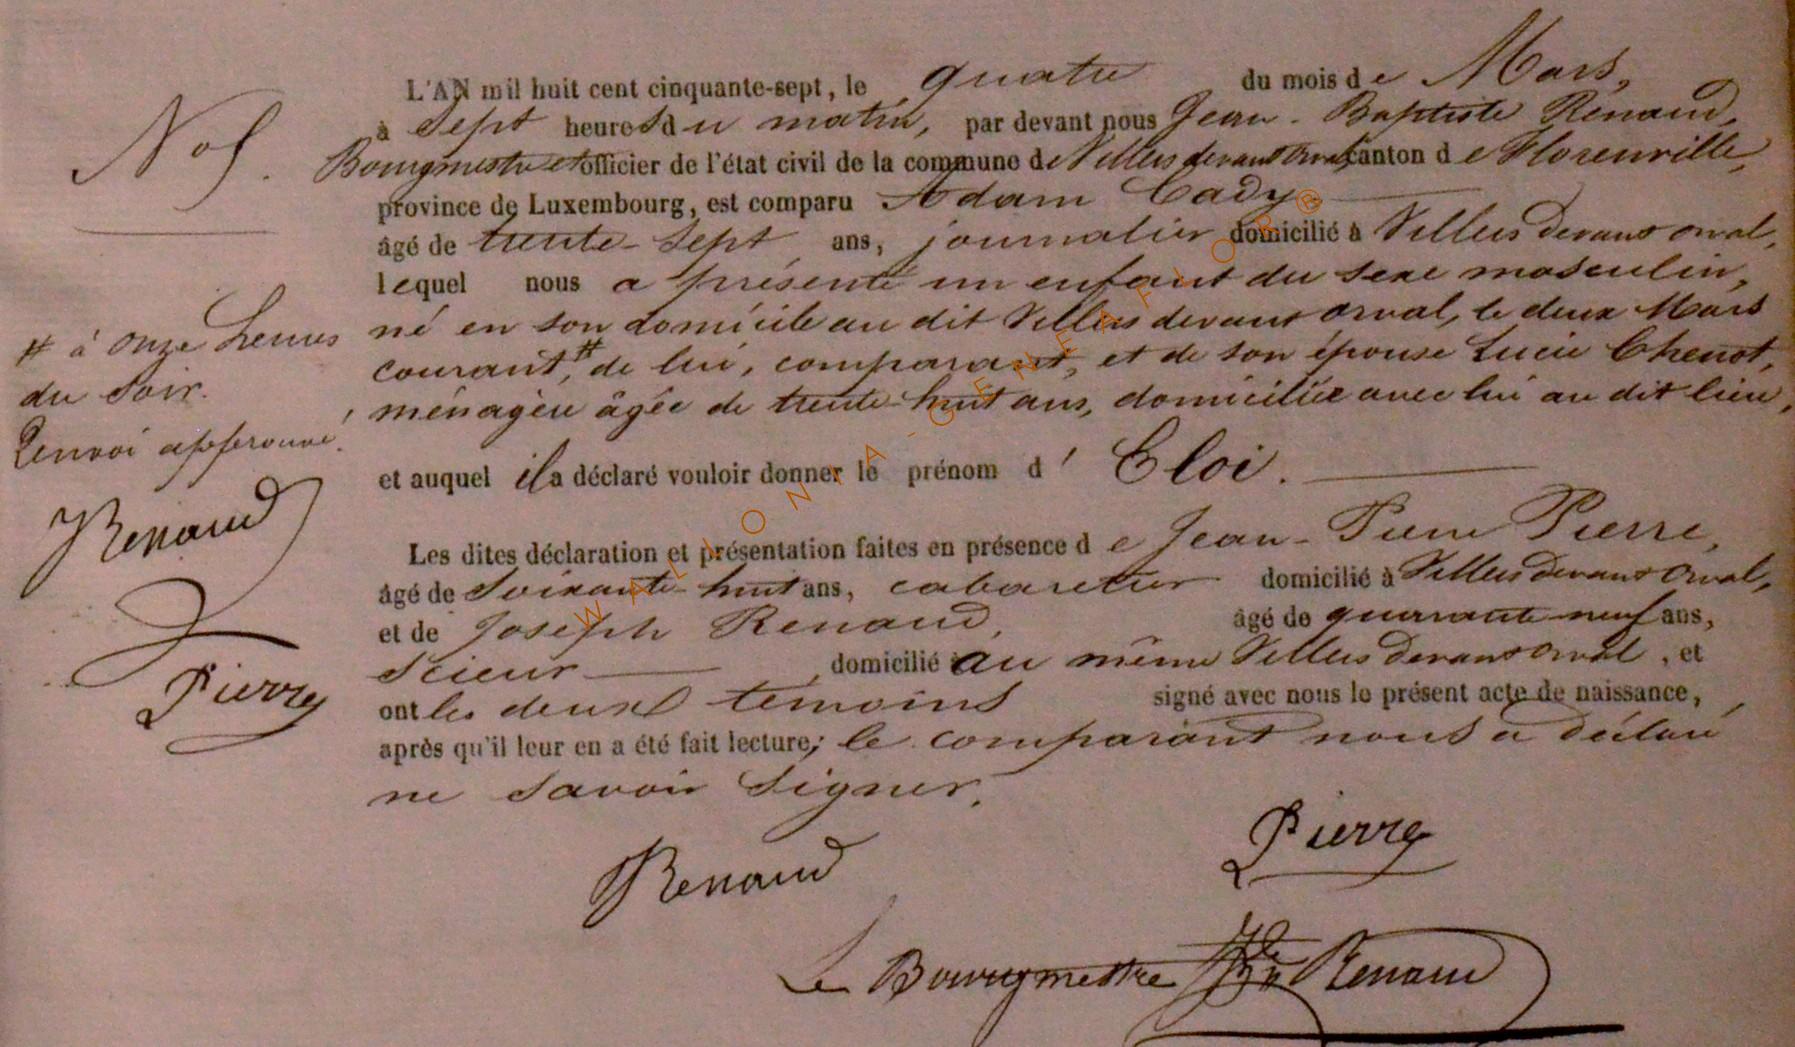 N° 8.
L'AN mil huit cent cinquante-sept, le quatre du mois de Mars,
à Sept heures du matin, par devant nous Jean-Baptiste Renaud,
Bourgmestre et officier de l'état civil de la commune de Villers devant Orval, canton de Florenville,
province de Luxembourg, est comparu Adam Cady
âgé de trente-sept ans, journalier domicilié à Villers devant orval,
lequel nous a présenté un enfant du sexe masculin,
né en son domicile au dit Villers devant orval, le deux Mars
courant,# de lui, comparant, et de son épouse Lucie Chenot,
ménagère âgée de trente-huit ans, domiciliée avec lui au dit lieu,
et auquel il a déclaré vouloir donner le prénom d' Eloi.
# à onze heures
du soir.
Renvoi approuvé.
Renaud
Pierre
Les dites déclaration et présentation faites en présence de Jean-Pierre Pierre,
âgé de Soixante-huit ans, cabaretier domicilié à Villers devant Orval,
et de Joseph Renaud, âgé de quarante-neuf ans,
Scieur domicilié au même Villers devant orval, et
ont les deux témoins signé avec nous le présent acte de naissance,
après qu'il leur en a été fait lecture; le comparant nous a déclaré
ne savoir signer.
Renaud
Pierre
Le Bourgmestre Jn Bte Renaud
WALLONIA-GENEAFLOR®